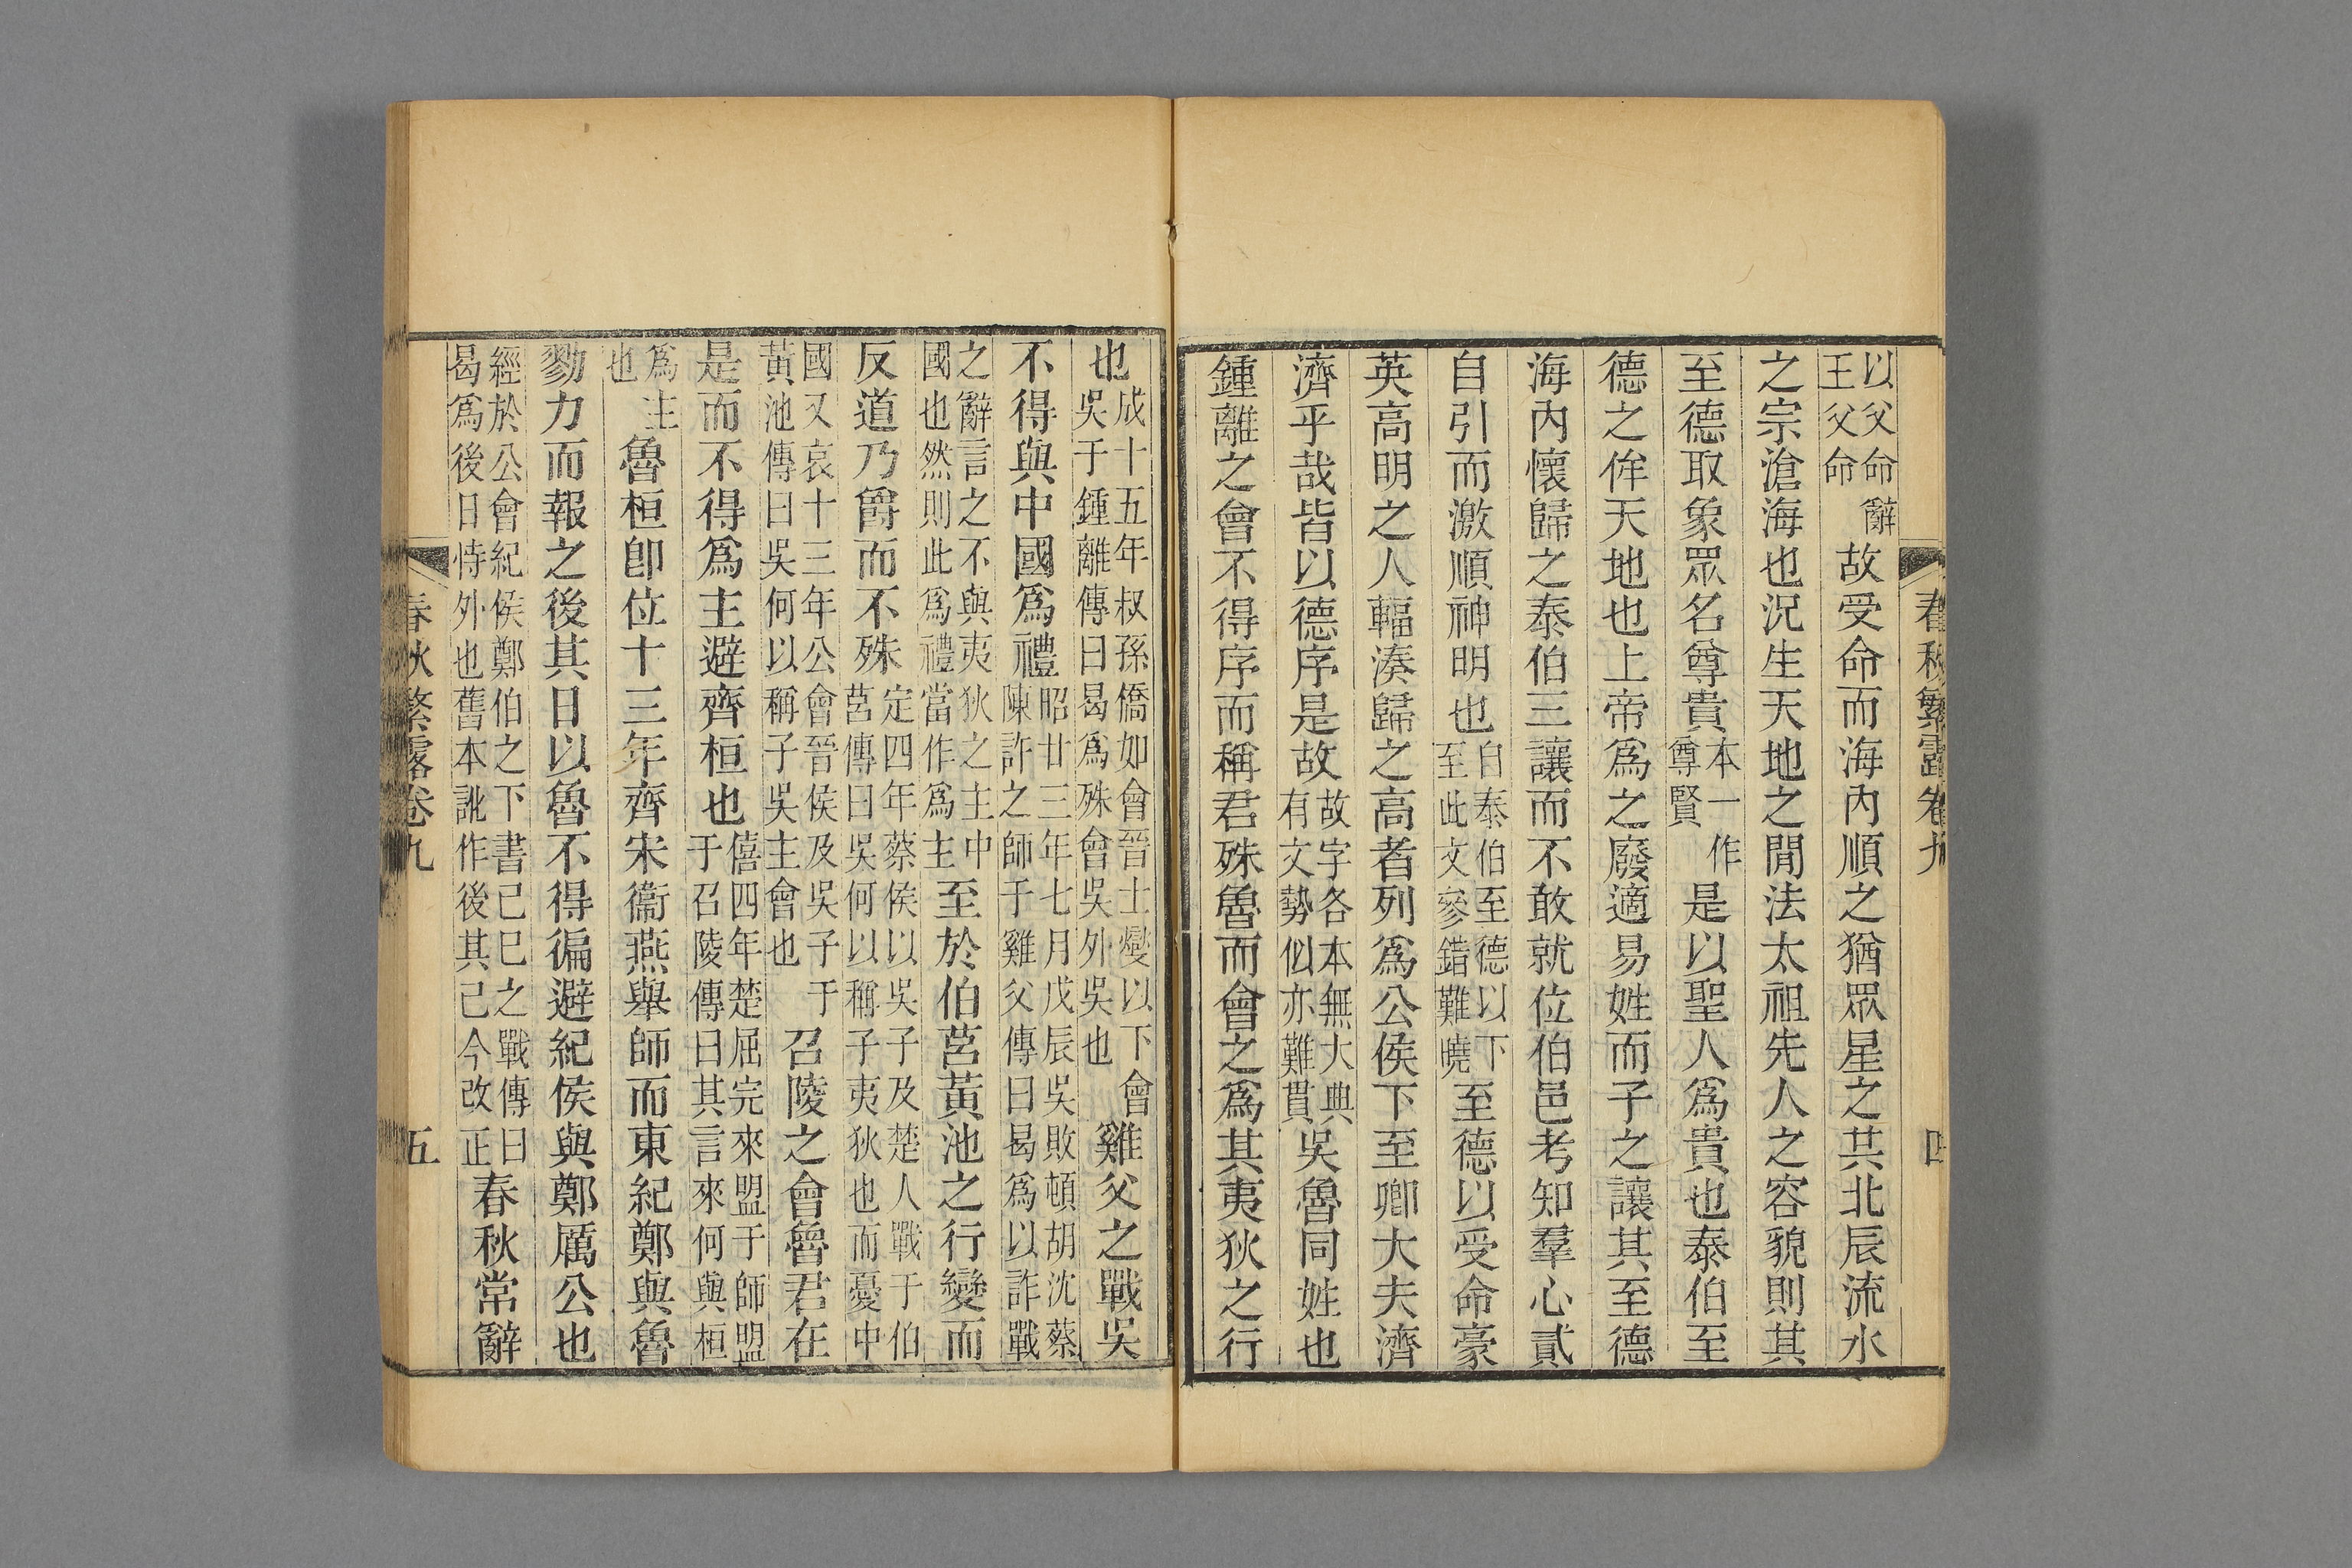 春秋繁露卷九
四
以父命辭王父命故受命而海內順之猶眾星之共北辰流水
之宗滄海也況生天地之閒法太祖先人之容貌則其
至德取象眾名尊貴本一作尊賢是以聖人爲貴也泰伯至
德之侔天地也上帝爲之廢適易姓而子之讓其至德
海內懷歸之泰伯三讓而不敢就位伯邑考知羣心貳
自引而激順神明也自泰伯至德以下至此文參錯難曉至德以受命豪
英高明之人輻湊歸之高者列爲公侯下至卿大夫濟
濟乎哉皆以德序是故故字各本無大典有文勢似亦難貫吳魯同姓也
鍾離之會不得序而稱君殊魯而會之爲其夷狄之行
也成十五年叔孫僑如會晉士燮以下會吳于鍾離傳曰曷爲殊會吳外吳也雞父之戰吳
不得與中國爲禮昭廿三年七月戊辰吳敗頓胡沈蔡陳許之師于雞父傳曰曷爲以詐戰
之辭言之不與夷狄之主中國也然則此爲禮當作爲主至於伯莒黃池之行變而
反道乃爵而不殊定四年蔡侯以吳子及楚人戰于伯莒傳曰吳何以稱子夷狄也而憂中
國又哀十三年公會晉侯及吳子于黃池傳曰吳何以稱子吳主會也召陵之會魯君在
是而不得爲主避齊桓也僖四年楚屈完來盟于師盟于召陵傳曰其言來何與桓
爲主也魯桓卽位十三年齊宋衞燕舉師而東紀鄭與魯
勠力而報之後其日以魯不得徧避紀侯與鄭厲公也
經於公會紀侯鄭伯之下書己巳之戰傳曰曷爲後日恃外也舊本訛作後其己今改正春秋常辭
春秋繁露卷九
五